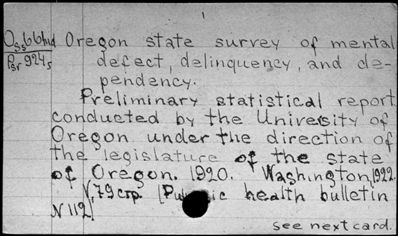 1
Oregon state survey of mental
defect, delinquency, and de-
pendency.
Preliminary statistical report
conducted by the University of
Oregon under the direction of
the legislature of the state
of Oregon. 1920. Washington, 1922.
79 [ health bulletin
N 112]
see next card.